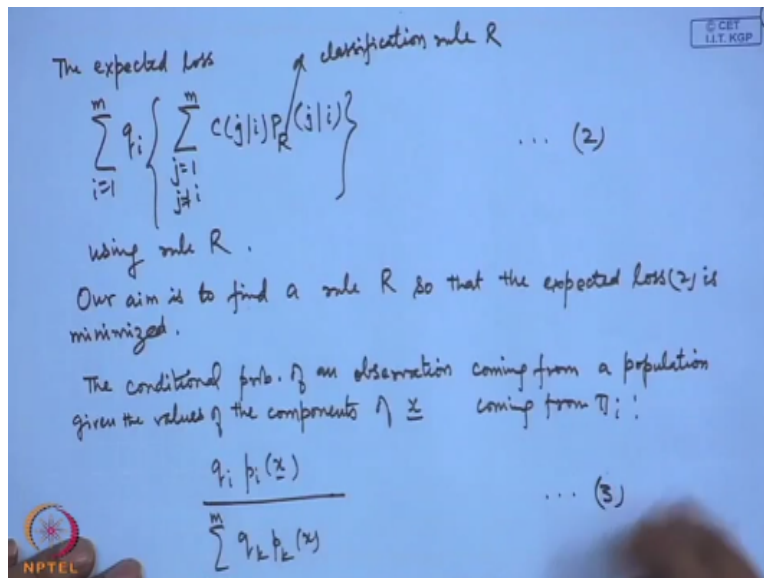 © CET
I.I.T. KGP
The expected loss → classification rule R
m m
∑ qi { ∑ c(j|i) PR (j|i) } ... (2)
i=1 j=1
j≠i
using rule R.
Our aim is to find a rule R so that the expected loss (2) is
minimized.
The conditional prob. of an observation coming from a population
given the values of the components of x coming from πi :
qi pi(x)
m ... (3)
∑ qk pk(x)
NPTEL